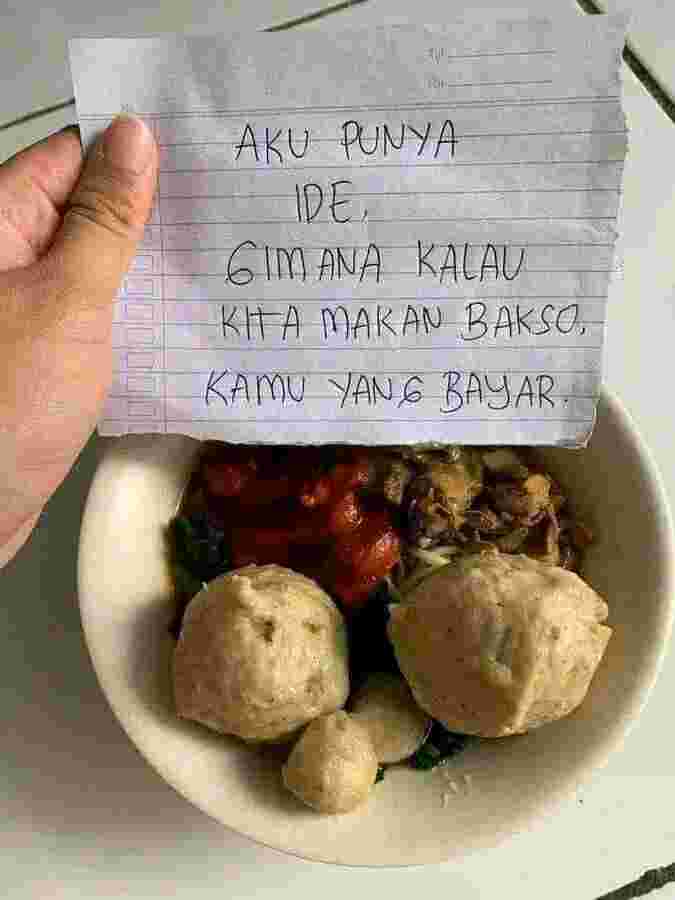 AKU PUNYA
IDE,
GIMANA KALAU
KITA MAKAN BAKSO,
KAMU YANG BAYAR.